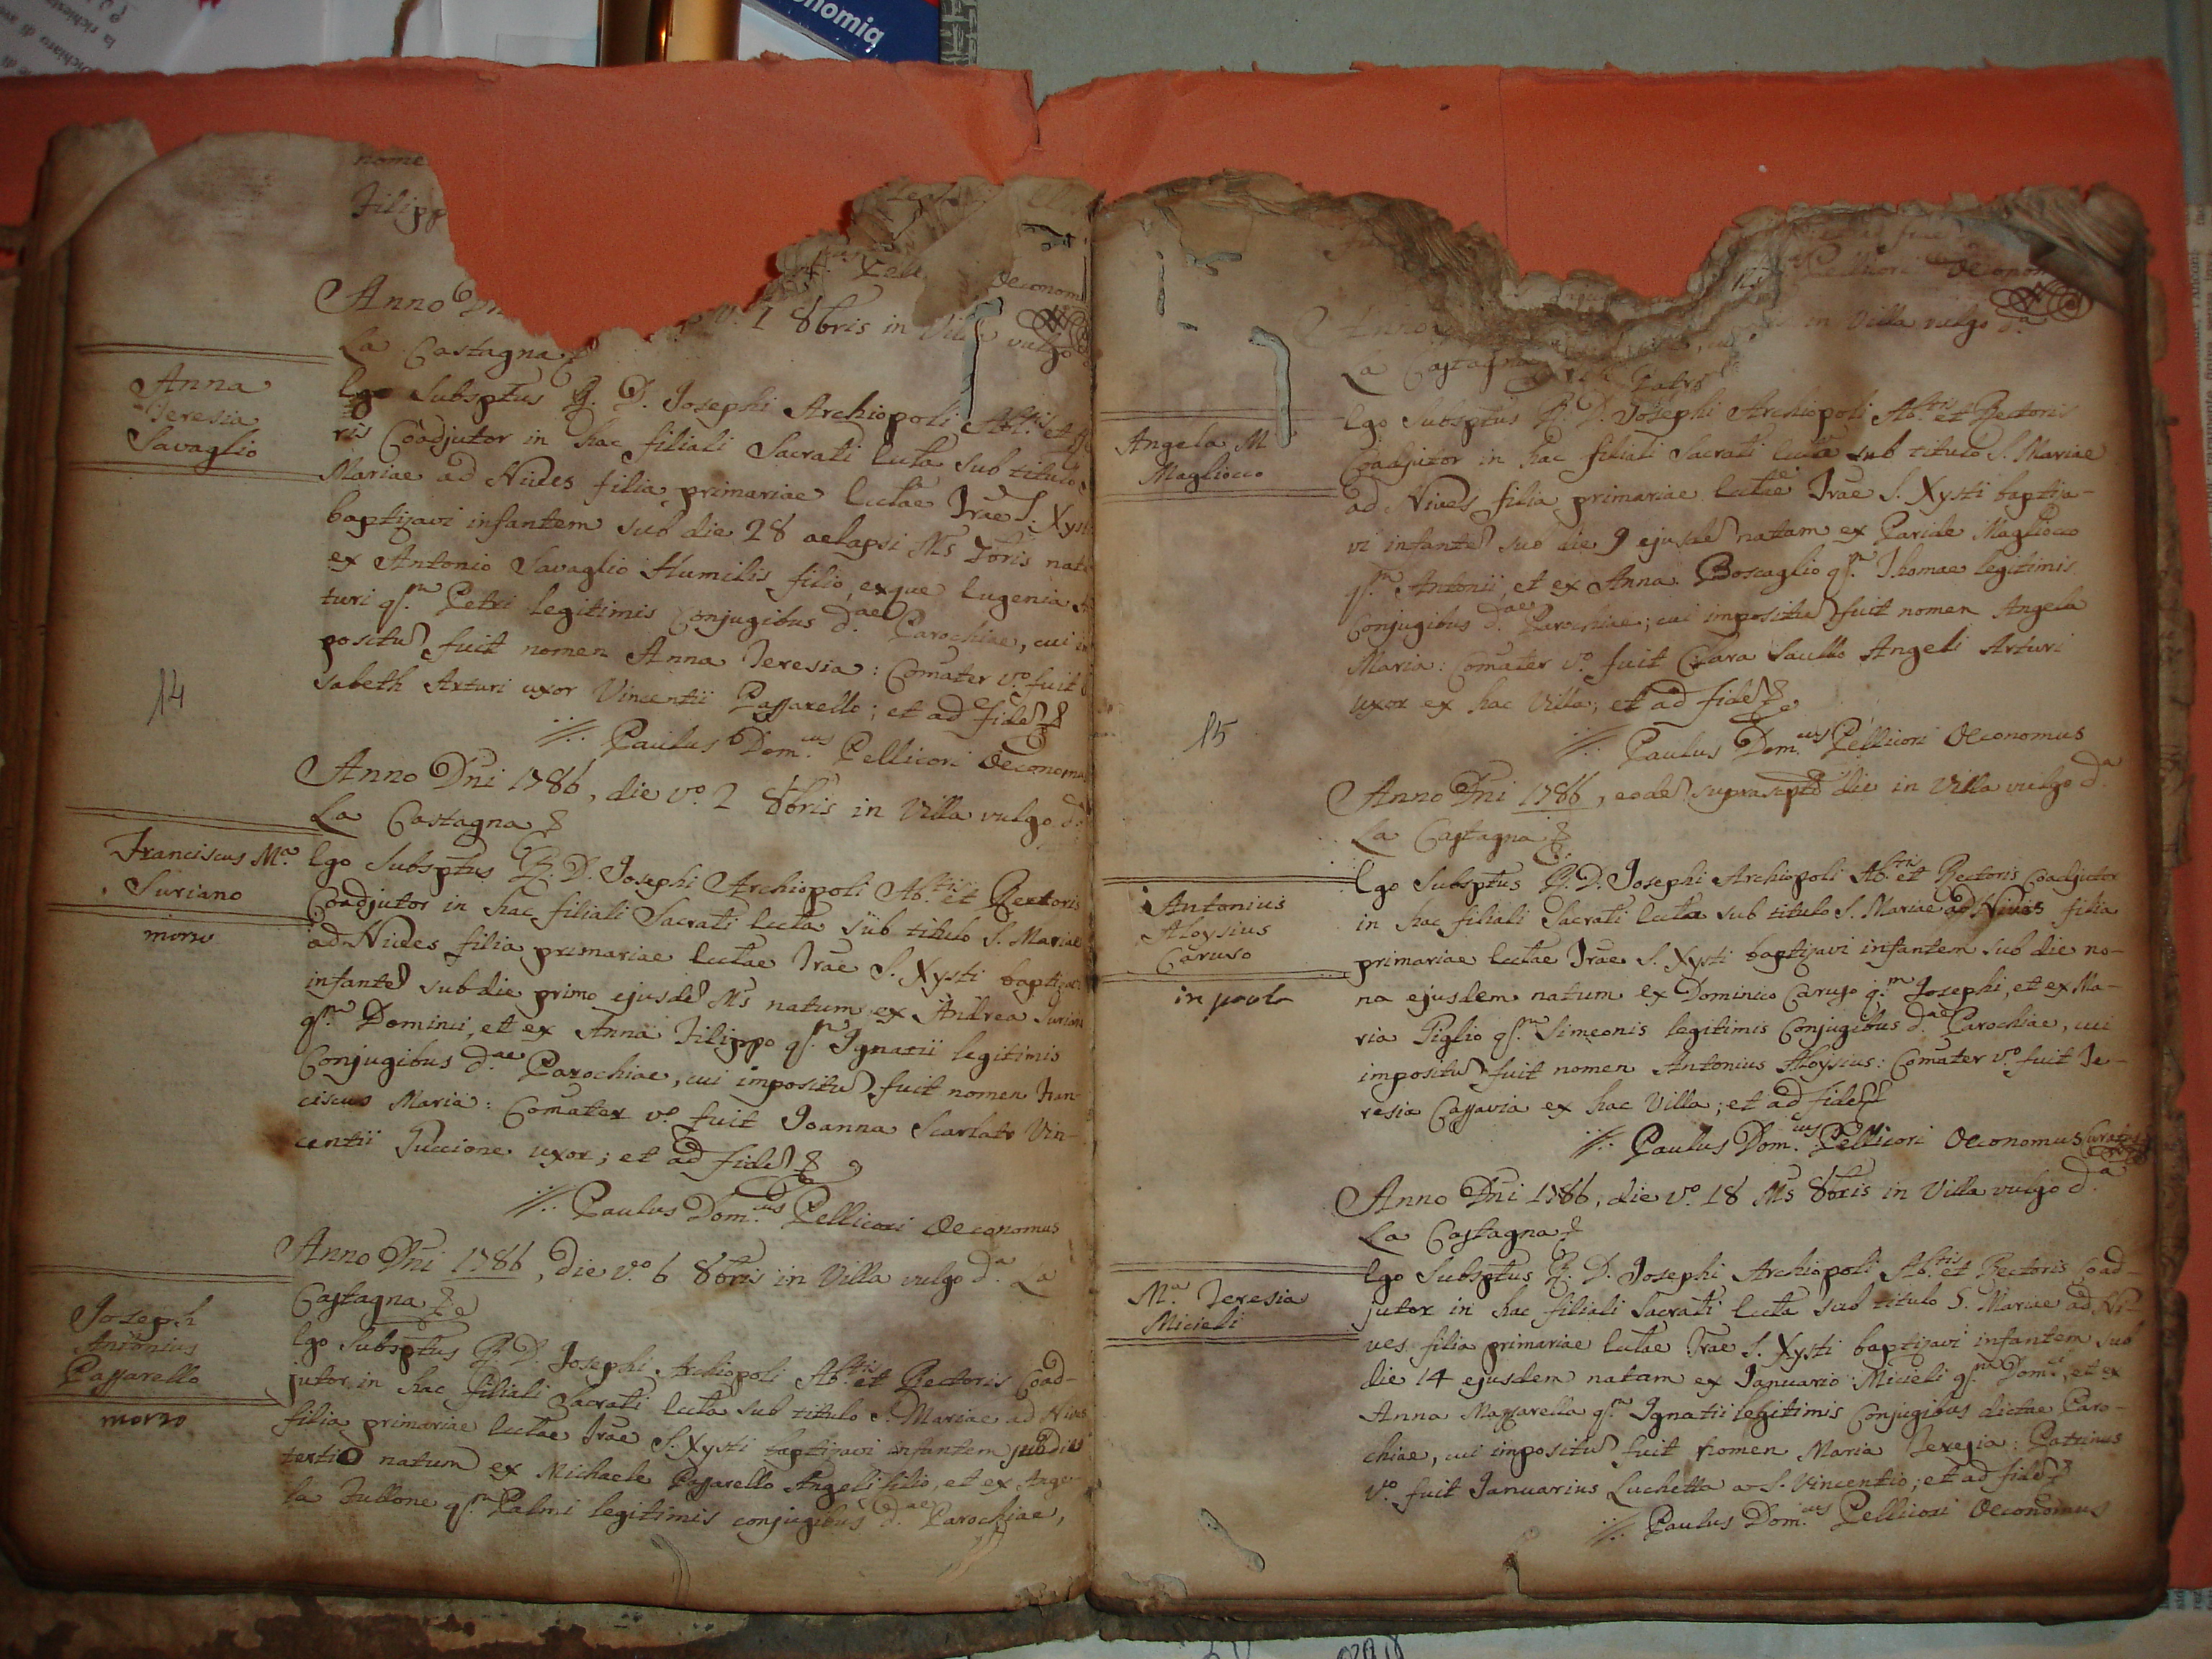 nomiq
nome
Filipp
Oeconom
Anno
1 8bris in Villa vulgo
La Castagna
Anna
Teresia
Savaglio
Ego Subsptus R. D. Josephi Archiopoli Ab.tis et
ris Coadjutor in hac filiali Sacrati Eccta sub titulo
Mariae ad Nives filia primariae Ecctae Trae S. Xysti
baptizavi infantem sub die 28 aelapsi Ms 7bris nat
ex Antonio Savaglio Humilis filio, exque Eugenia
turi qs.m Petri legitimis Conjugibus d.ae Parochiae, cui im
positu fuit nomen Anna Teresia: Comater v.o fuit
sabeth Arturi uxor Vincentii Passarello; et ad fide
14
Paulus Dom.cus Pellicori Oeconomu
Anno Dni 1786, die v.o 2 8bris in Villa vulgo d.a
La Castagna
Franciscus M.a
Suriano
morto
Ego Subsptus R. D. Josephi Archiopoli Ab.tis et Rectoris
Coadjutor in hac filiali Sacrati Eccta sub titulo S. Mariae
ad Nives filia primariae Ecctae Trae S. Xysti baptizavi
infante sub die primo ejusde Ms natum ex Andrea Surian
qs.m Dominici, et ex Anna Filippo qs.m Ignatii legitimis
Conjugibus d.ae Parochiae, cui impositu fuit nomen Fran-
ciscus Maria: Comater v.o fuit Joanna Scarlato Vin-
centii Puccione uxor; et ad fide
Paulus Dom.cus Pellicori Oeconomus
Anno Dni 1786, die v.o 6 8bris in Villa vulgo d.a La
Castagna
Joseph
Antonius
Passarello
morto
Ego Subsptus R. D. Josephi Archiopoli Ab.tis et Rectoris Coad-
jutor in hac filiali Sacrati Eccta sub titulo S. Mariae ad Nives
filia primariae Ecctae Trae S. Xysti baptizavi infantem sub die
tertio natum ex Michaele Passarello Angeli filio, et ex Ange-
la Tullone qs.m Palmi legitimis conjugibus d.ae Parochiae,
Pellicori Oeconom
Anno
in Villa vulgo d.a
La Castagna
Angela M
Magliocco
Ego Subsptus R. D. Josephi Archiopoli Ab.tis et Rectoris
Coadjutor in hac filiali Sacrati Eccta sub titulo S. Mariae
ad Nives filia primariae Ecctae Trae S. Xysti baptiza-
vi infante sub die 9 ejusde natam ex Paride Magliocco
qs.m Antonii, et ex Anna Boscaglio qs.m Thomae legitimis
Conjugibus d.ae Parochiae; cui impositu fuit nomen Angela
Maria: Comater v.o fuit Clara Saullo Angeli Arturi
uxor ex hac Villa; et ad fide
15
Paulus Dom.cus Pellicori Oeconomus
Anno Dni 1786, eode suprascpto die in Villa vulgo d.a
La Castagna
Antonius
Aloysius
Caruso
Ego Subsptus R. D. Josephi Archiopoli Ab.tis et Rectoris Coadjutor
in hac filiali Sacrati Eccta sub titulo S. Mariae ad Nives filia
primariae Ecctae Trae S. Xysti baptizavi infantem sub die no-
na ejusdem natum ex Dominico Caruso q.m Josephi, et ex Ma-
ria Piglio qs.m Simeonis legitimis Conjugibus d.ae Parochiae, cui
impositu fuit nomen Antonius Aloysius: Comater v.o fuit Te-
resia Cassavia ex hac Villa; et ad fide
Paulus Dom.cus Pellicori Oeconomus Curatus
Anno Dni 1786, die v.o 18 Ms 8bris in Villa vulgo d.a
La Castagna
M.a Teresia
Micieli
Ego Subsptus R. D. Josephi Archiopoli Ab.tis et Rectoris Coad-
jutor in hac filiali Sacrati Eccta sub titulo S. Mariae ad Ni-
ves filia primariae Ecctae Trae S. Xysti baptizavi infantem sub
die 14 ejusdem natam ex Januario Micieli qs.m Dom.ci, et ex
Anna Mazzarella qs.m Ignatii legitimis Conjugibus dictae Paro-
chiae, cui impositu fuit nomen Maria Teresia: Patrinus
v.o fuit Januarius Luchetta a S. Vincentio; et ad fide
Paulus Dom.cus Pellicori Oeconomus